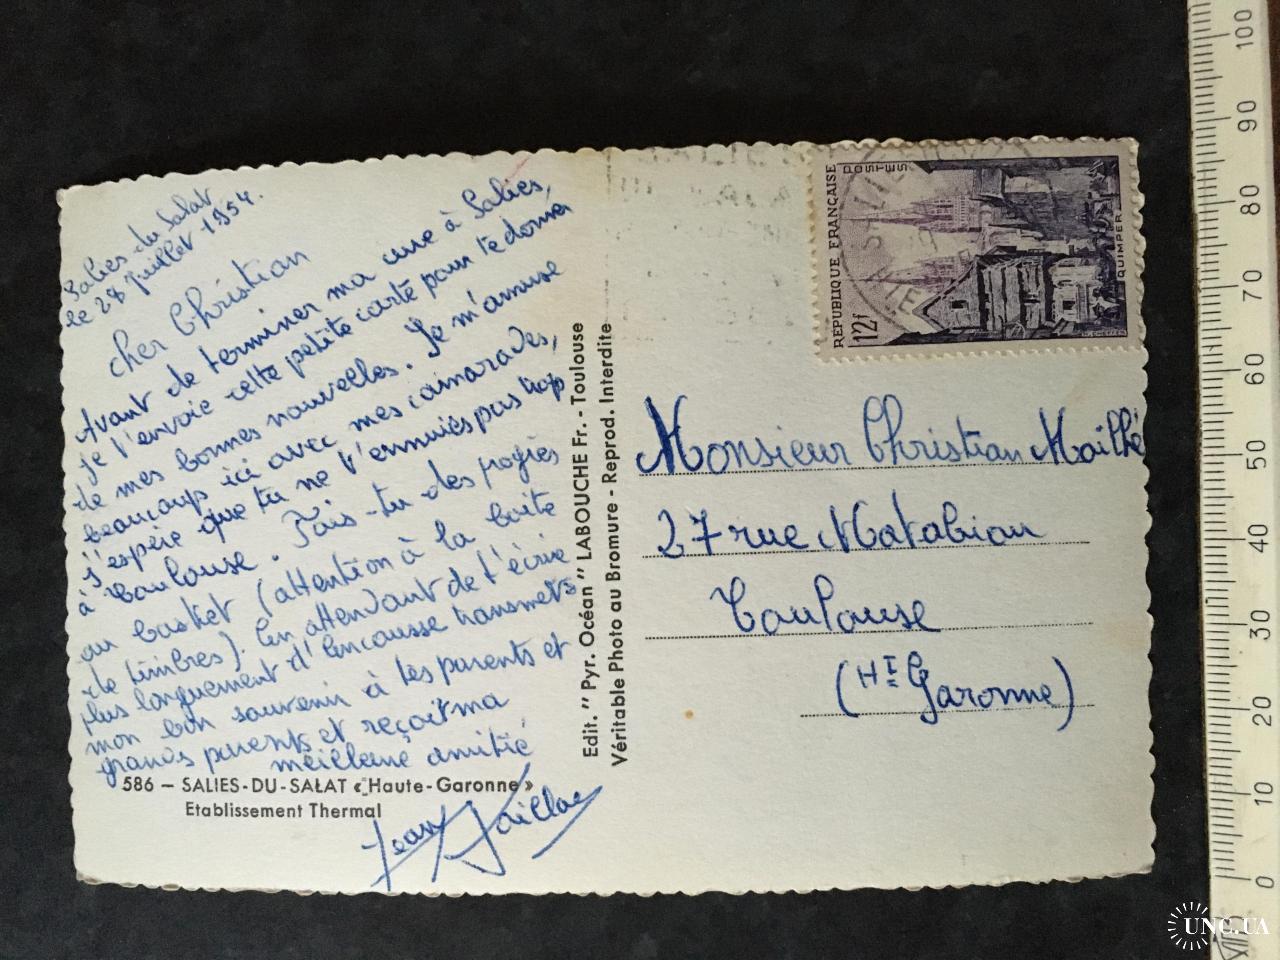 Salies-du-Salat
le 28 juillet 1954.
cher Christian
Avant de terminer ma cure à Salies,
je t'envoie cette petite carte pour te donner
de mes bonnes nouvelles. Je m'amuse
beaucoup ici avec mes camarades,
j'espère que tu ne t'ennuies pas trop
à Toulouse. Fais-tu des progrès
au basket (attention à la boite
de timbres). En attendant de t'écrire
plus longuement d'Encausse transmets
mon bon souvenir à tes parents et
grands parents et reçoit ma
meilleure amitié
Jean
586 – SALIES-DU-SALAT « Haute-Garonne »
Etablissement Thermal
Edit. " Pyr. Océan " LABOUCHE Fr. - Toulouse
Véritable Photo au Bromure - Reprod. Interdite
RÉPUBLIQUE FRANÇAISE
POSTES
12f
QUIMPER
Monsieur Christian Mailhé
27 rue Matabiau
Toulouse
(HTE Garonne)
100
90
80
70
60
50
40
30
20
10
0
UNC.UA